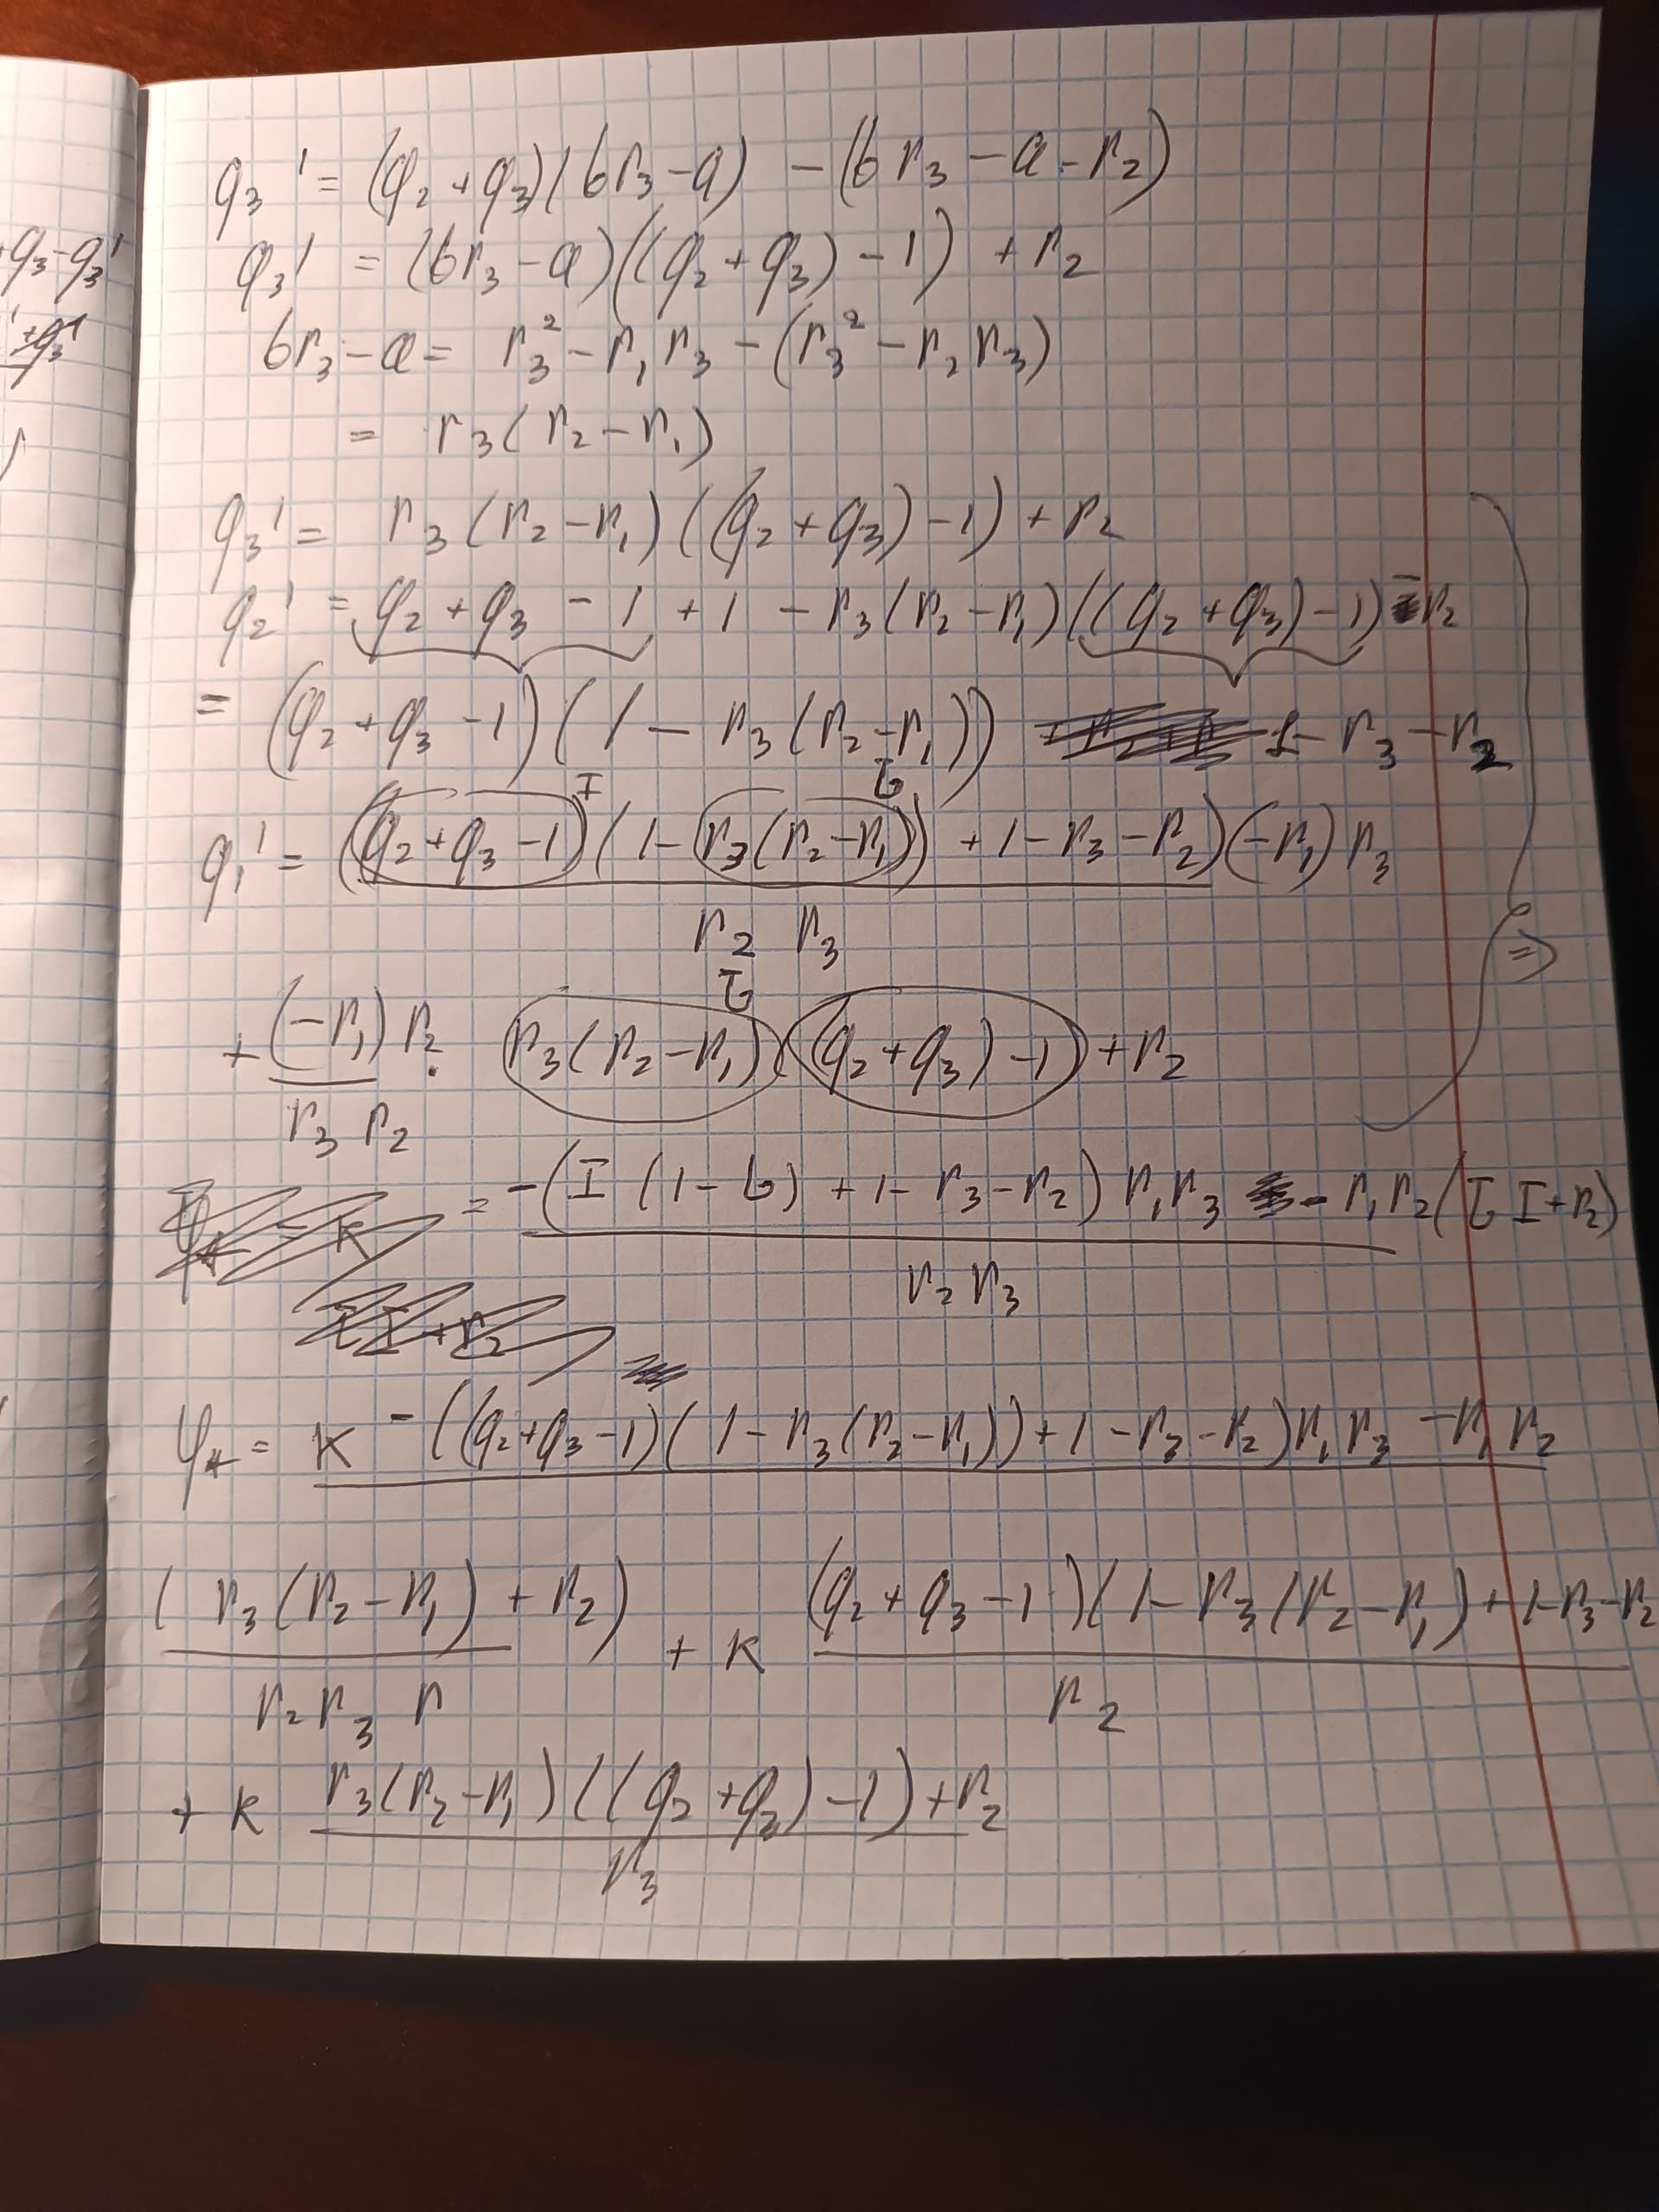 q₃' = (q₂+q₃)(br₃-a) - (br₃-a-r₂)
+q₃-q₃'
q₃' = (br₃-a)((q₂+q₃)-1) + r₂
br₃-a = r₃²-r₁r₃-(r₃²-r₂r₃)
= r₃(r₂-r₁)
q₃' = r₃(r₂-r₁)((q₂+q₃)-1)+r₂
q₂' = q₂+q₃-1+1-r₃(r₂-r₁)((q₂+q₃)-1)-r₂
= (q₂+q₃-1)(1-r₃(r₂-r₁)) 1-r₃-r₂
I Б
q₁' = ((q₂+q₃-1)(1-r₃(r₂-r₁))+1-r₃-r₂)(-r₁)r₃
r₂ r₃
⇒
Б
+ (-r₁)r₂. r₃(r₂-r₁)((q₂+q₃)-1)+r₂
r₃ r₂
= -(I(1-Б)+1-r₃-r₂)r₁r₃ - r₁r₂(Б I+r₂)
r₂ r₃
φ* = K -((q₂+q₃-1)(1-r₃(r₂-r₁))+1-r₃-r₂)r₁r₃ -r₁r₂
(r₃(r₂-r₁)+r₂) + K (q₂+q₃-1)(1-r₃(r₂-r₁)+1-r₃-r₂
r₂ r₃ r r₂
+ K r₃(r₂-r₁)((q₂+q₃)-1)+r₂
r₃